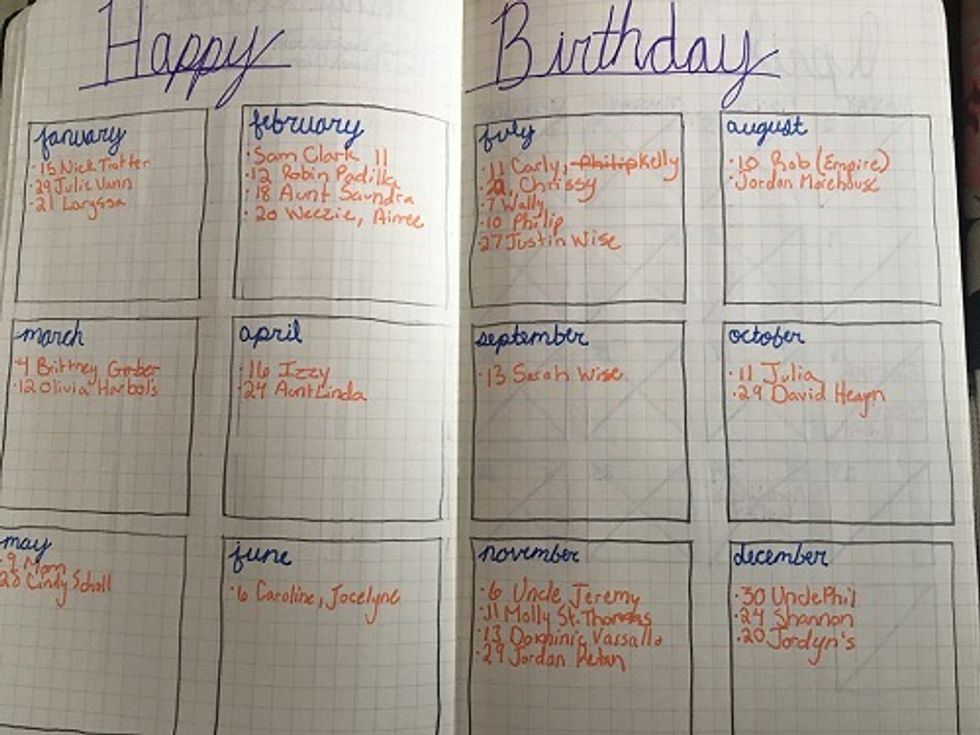 Happy Birthday
january
·15 Nick Trotter
·29 Julie Vann
·21 Laryssa
february
·Sam Clark 11
·12 Robin Padilla
·18 Aunt Saundra
·20 Weezie, Aimee
march
·4 Brittney Gerber
·12 Olivia Harbols
april
·16 Izzy
·24 Aunt Linda
may
·9 Mom
·28 Cindy Scholl
june
·6 Caroline, Jocelyne
july
·11 Carly, Philip Kelly
Chrissy
·7 Wally
·10 Philip
·27 Justin Wise
august
·10 Rob (Empire)
·Jordan Morehouse
september
·13 Sarah Wise
october
·11 Julia
·29 David Heagn
november
·6 Uncle Jeremy
·11 Molly St. Thomas
·13 Dominic Vassallo
·29 Jordan
december
·30 Uncle Phil
·24 Shannon
·20 Jordyn's